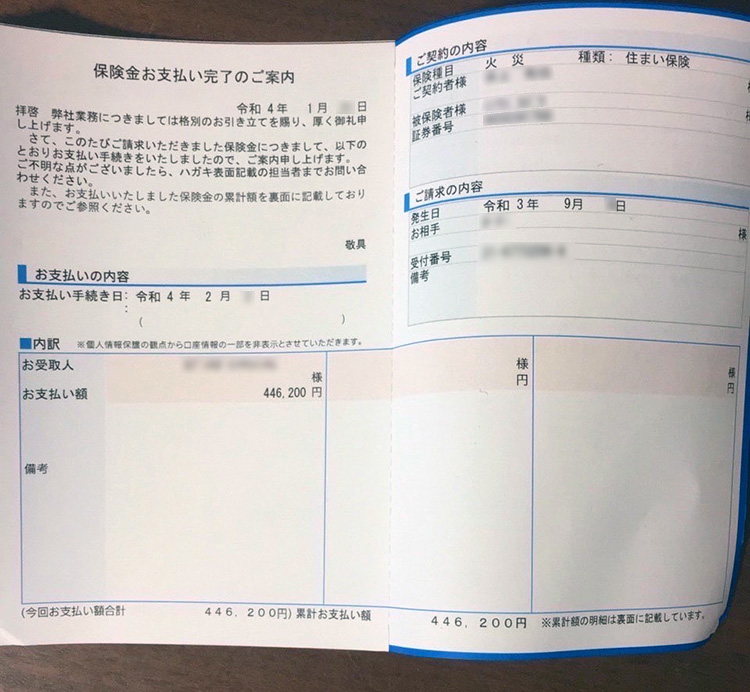 保険金お支払い完了のご案内
令和 4 年　1 月　日
拝啓　弊社業務につきましては格別のお引き立てを賜り、厚く御礼申
し上げます。
さて、このたびご請求いただきました保険金につきまして、以下の
とおりお支払い手続きをいたしましたので、ご案内申し上げます。
ご不明な点がございましたら、ハガキ表面記載の担当者までお問い合
わせください。
また、お支払いいたしました保険金の累計額を裏面に記載しており
ますのでご参照ください。
敬具
お支払いの内容
お支払い手続き日：令和 4 年　2 月　日
：
（　）
■内訳　※個人情報保護の観点から口座情報の一部を非表示とさせていただきます。
お受取人
様
お支払い額　446,200 円
備考
(今回お支払い額合計　446，200円)
ご契約の内容
保険種目　火　災　種類：　住まい保険
ご契約者様
被保険者様
証券番号
ご請求の内容
発生日　令和 3 年　9月　日
お相手　様
受付番号
備考
様
円
様
円
累計お支払い額　446，200円　※累計額の明細は裏面に記載しています。